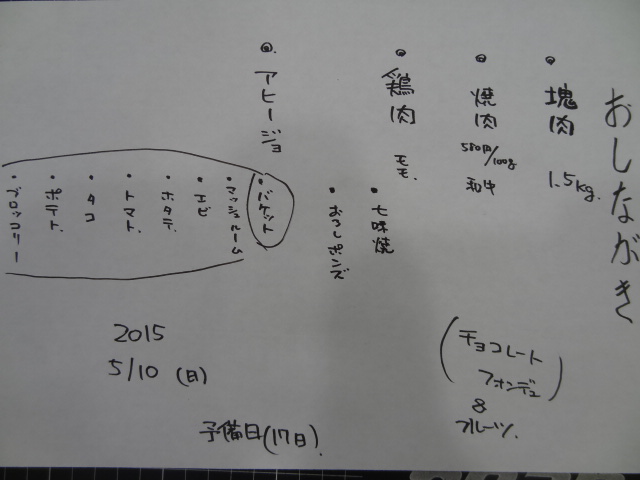 おしながき
・塊肉 1.5kg.
◎焼肉 580円/100g 和牛
・鶏肉 モモ.
・七味焼
・おろしポンズ
◎アヒージョ
・バケット
・マッシュルーム
・エビ
・ホタテ
・トマト
・タコ
・ポテト
・ブロッコリー
(チョコレート
フォンデュ
&
フルーツ.)
2015
5/10(日)
予備日(17日).